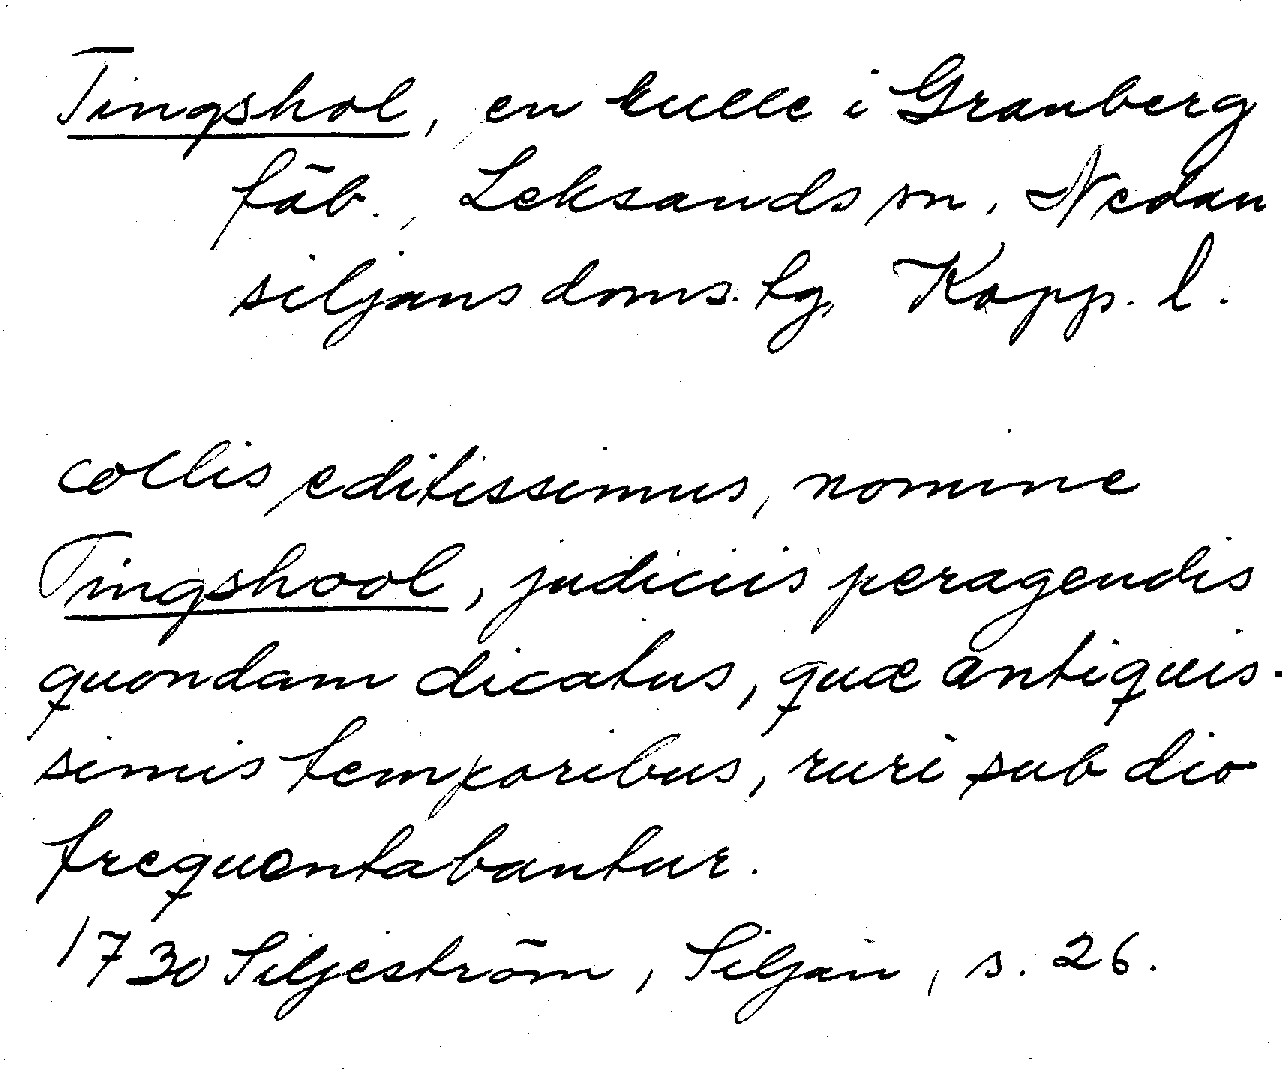 Tingshol, en kulle i Granberg
fäb., Leksands sn. Nedan
siljans doms. tg, Kopp. l.
collis editissimus, nomine
Tingshool, judiciis peragendis
quondam dicatus, quæ antiquis-
simis temporibus, ruri sub dio
frequentabantur.
1730 Siljeström, Siljan, s. 26.